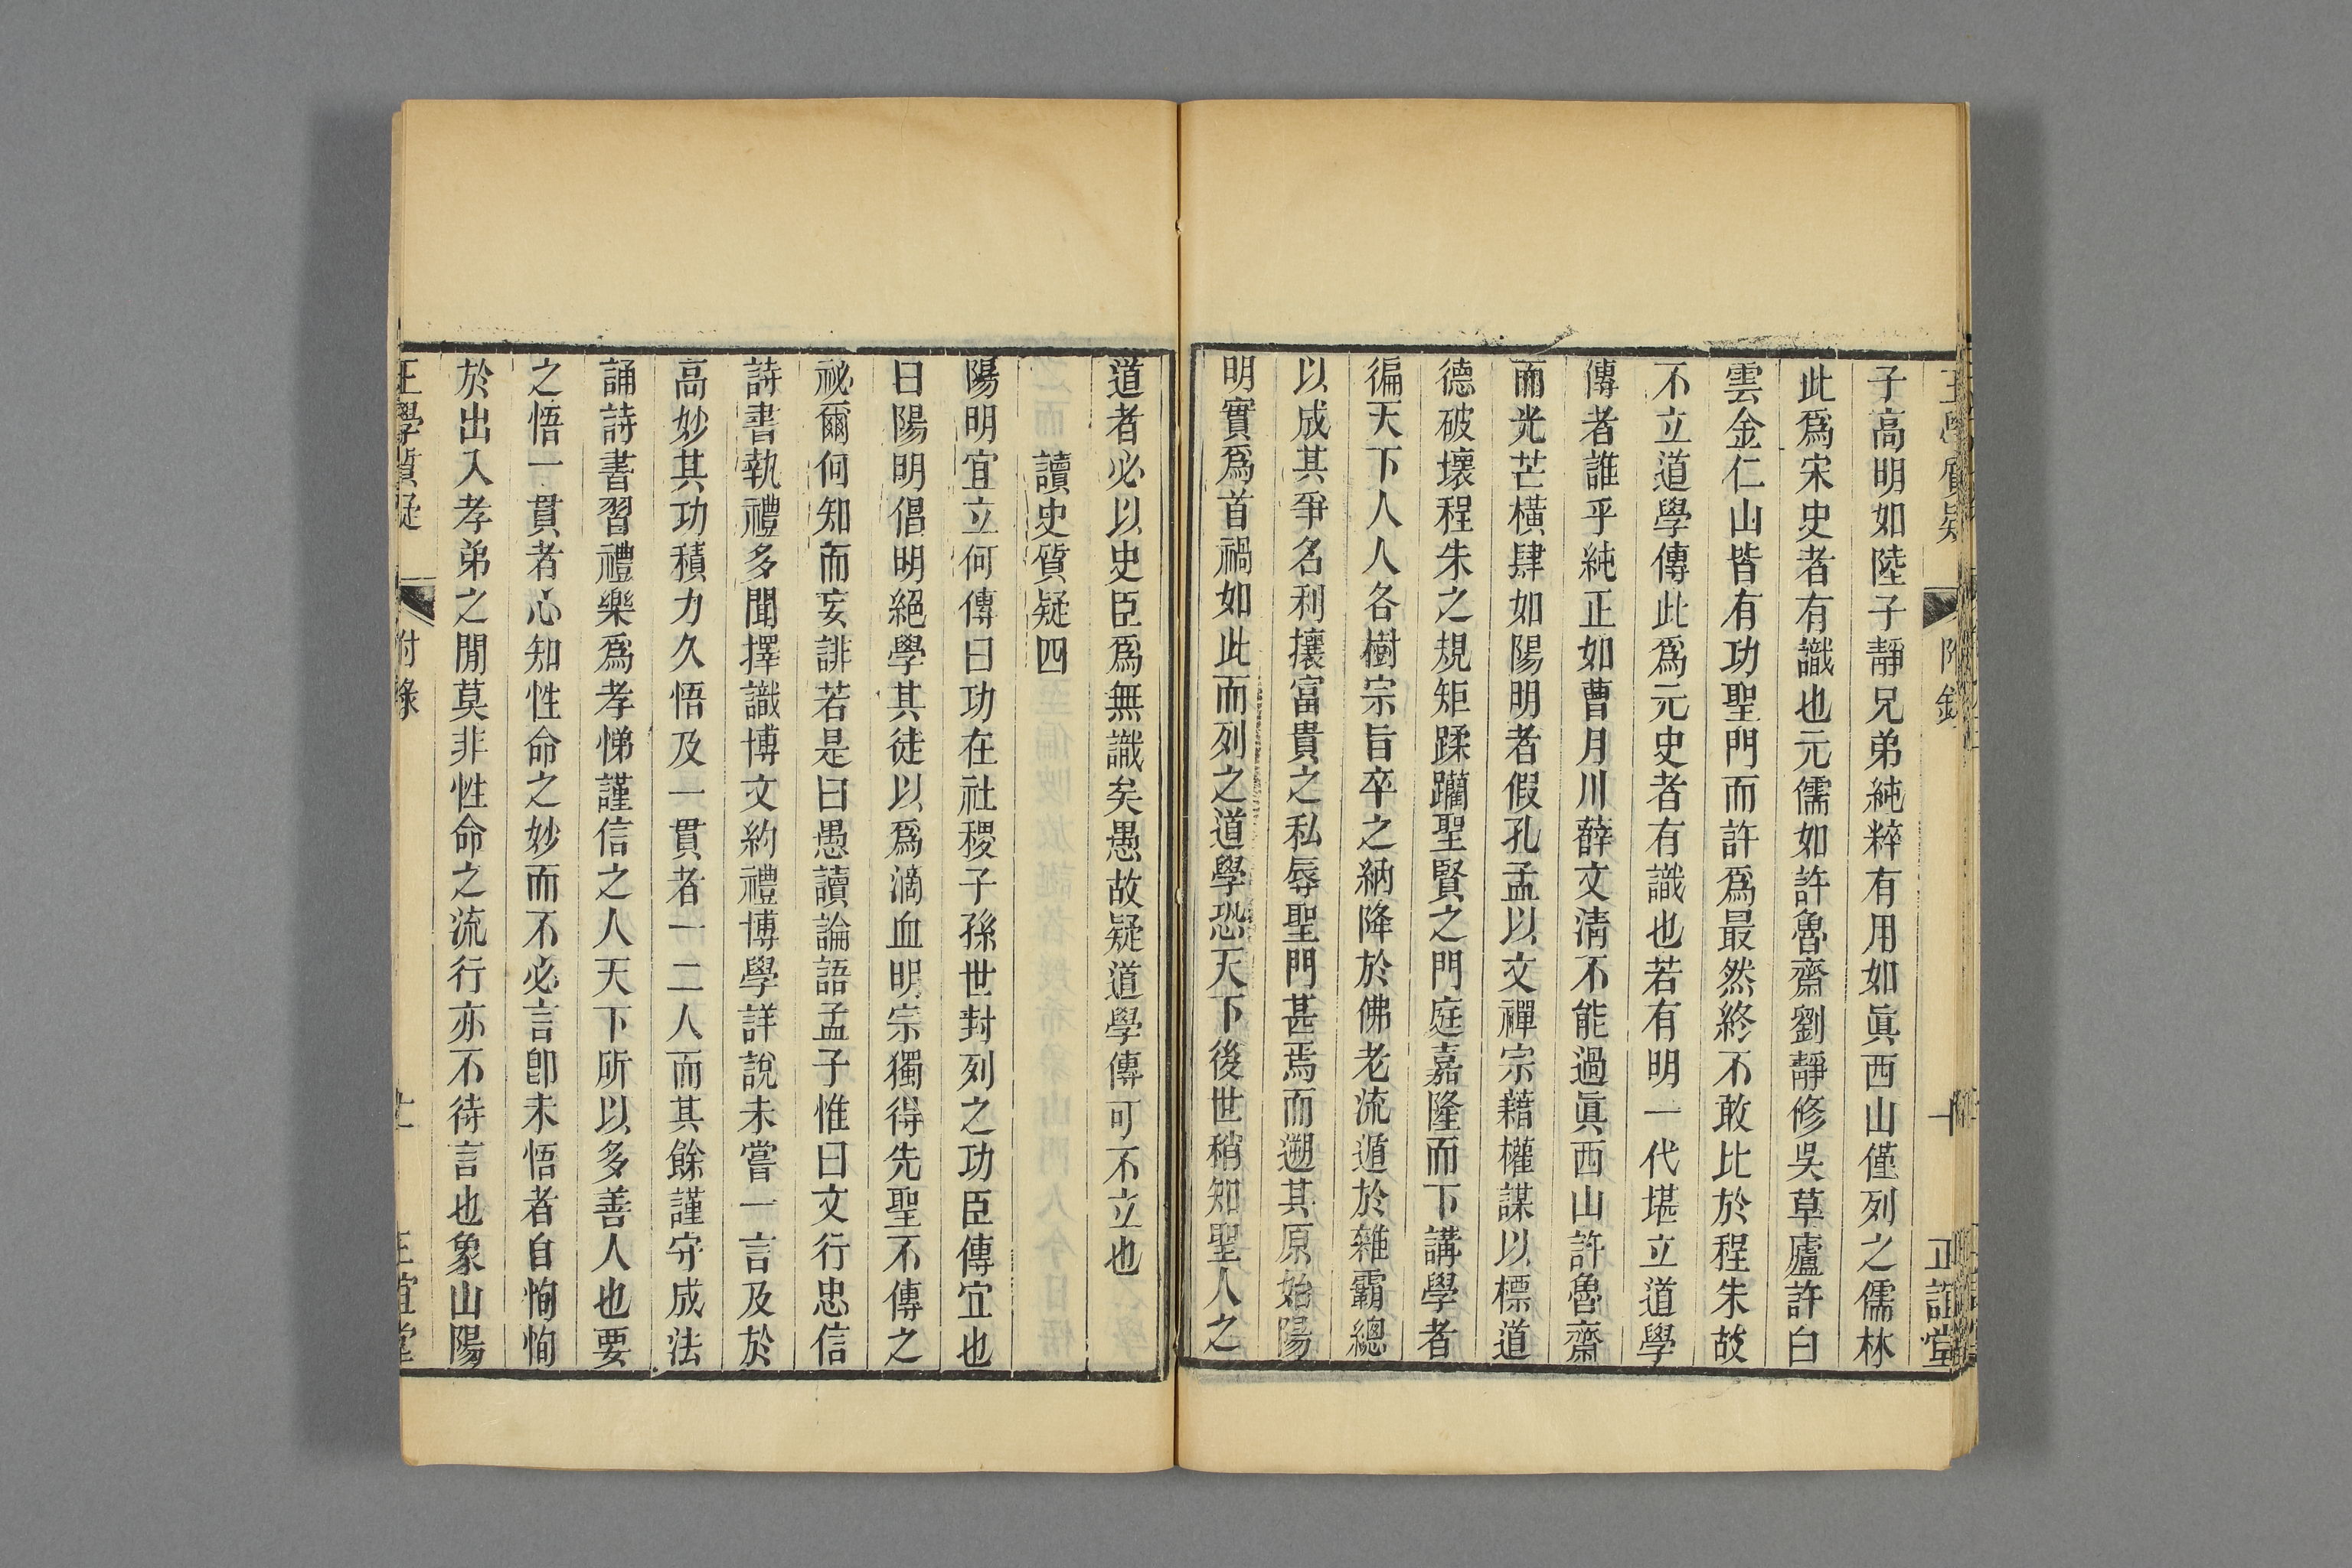 王學質疑 附錄 十 正誼堂
子高明如陸子靜兄弟純粹有用如眞西山僅列之儒林
此爲宋史者有識也元儒如許魯齋劉靜修吳草廬許白
雲金仁山皆有功聖門而許爲最然終不敢比於程朱故
不立道學傳此爲元史者有識也若有明一代堪立道學
傳者誰乎純正如曹月川薛文清不能過眞西山許魯齋
而光芒橫肆如陽明者假孔孟以文禪宗藉權謀以標道
德破壞程朱之規矩蹂躪聖賢之門庭嘉隆而下講學者
徧天下人人各樹宗旨卒之納降於佛老流遁於雜霸總
以成其爭名利攘富貴之私辱聖門甚焉而遡其原始陽
明實爲首禍如此而列之道學恐天下後世稍知聖人之
道者必以史臣爲無識矣愚故疑道學傳可不立也
讀史質疑四
陽明宜立何傳曰功在社稷子孫世封列之功臣傳宜也
曰陽明倡明絕學其徒以爲滴血明宗獨得先聖不傳之
祕爾何知而妄誹若是曰愚讀論語孟子惟曰文行忠信
詩書執禮多聞擇識博文約禮博學詳說未嘗一言及於
高妙其功積力久悟及一貫者一二人而其餘謹守成法
誦詩書習禮樂爲孝悌謹信之人天下所以多善人也要
之悟一貫者心知性命之妙而不必言卽未悟者自恂恂
於出入孝弟之閒莫非性命之流行亦不待言也象山陽
王學質疑 附錄 十一 正誼堂